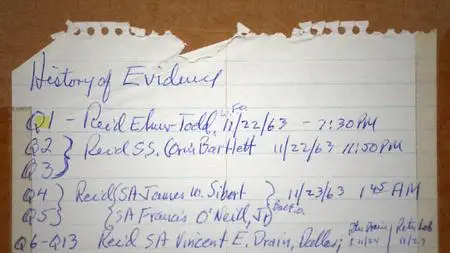 History of Evidence
Q1 - Rec'd Elmer Todd, 11/22/63 - 7:30 PM
Q2 } Rec'd S.S. Orrin Bartlett 11/22/63 11:50 PM
Q3
Q4 } Rec'd { SA James W. Sibert } 11/23/63 1 45 AM
Q5 { SA Francis O'Neill, Jr } Balto.
Q6-Q13 Rec'd SA Vincent E. Drain, Dallas;